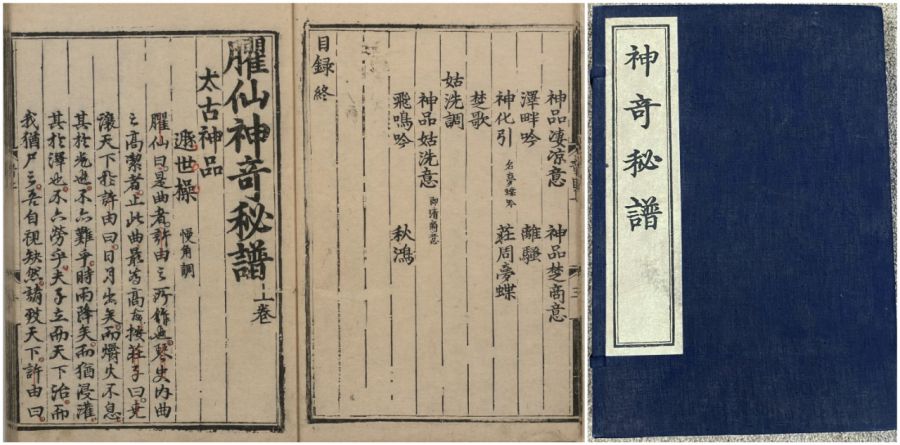 神奇秘譜
神品凄凉意 神品楚商意
澤畔吟 離騷
神化引 名夢蝶吟 莊周夢蝶
楚歌
姑洗調
神品姑洗意 即清商意
飛鳴吟 秋鴻
目録終
臞仙神奇秘譜 上卷
太古神品
遯世操 慢角調
臞仙曰是曲者許由之所作也琴史内曲
之高潔者止此曲最爲高古按莊子曰堯
讓天下於許由曰日月出矣而爝火不息
其於光也不亦難乎時雨降矣而猶浸灌
其於澤也不亦勞乎夫子立而天下治而
我猶尸之吾自視缺然請致天下許由曰